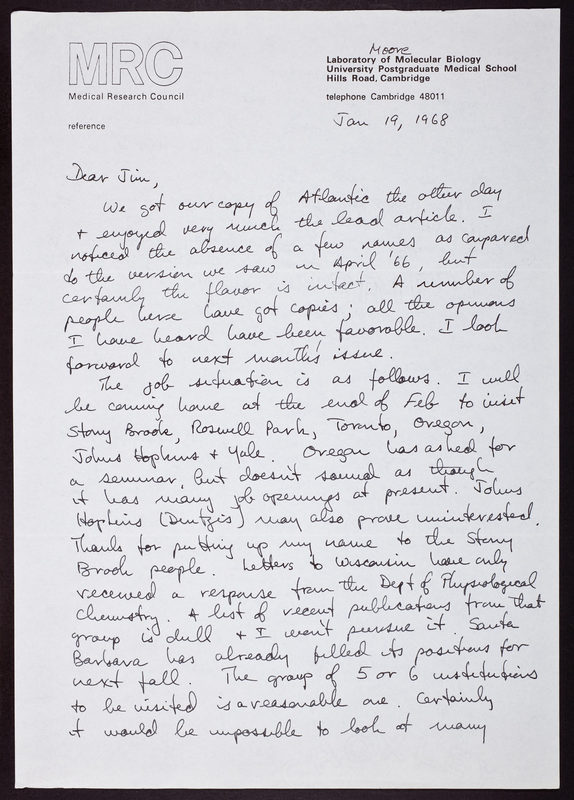 MRC
Medical Research Council
reference
Moore
Laboratory of Molecular Biology
University Postgraduate Medical School
Hills Road, Cambridge
telephone Cambridge 48011
Jan 19, 1968
Dear Jim,
We got our copy of Atlantic the other day
+ enjoyed very much the lead article. I
noticed the absence of a few names as compared
to the version we saw in April '66, but
certainly the flavor is intact. A number of
people here have got copies; all the opinions
I have heard have been favorable. I look
forward to next month's issue.
The job situation is as follows. I will
be coming home at the end of Feb to visit
Stony Brook, Roswell Park, Toronto, Oregon,
Johns Hopkins + Yale. Oregon has asked for
a seminar, but doesn't sound as though
it has many job openings at present. Johns
Hopkins (Dintzis) may also prove uninterested.
Thanks for putting up my name to the Stony
Brook people. Letters to Wisconsin have only
received a response from the Dept of Physiological
Chemistry. A list of recent publications from that
group is dull + I won't pursue it. Santa
Barbara has already filled its positions for
next fall. The group of 5 or 6 institutions
to be visited is a reasonable one. Certainly
it would be impossible to look at many